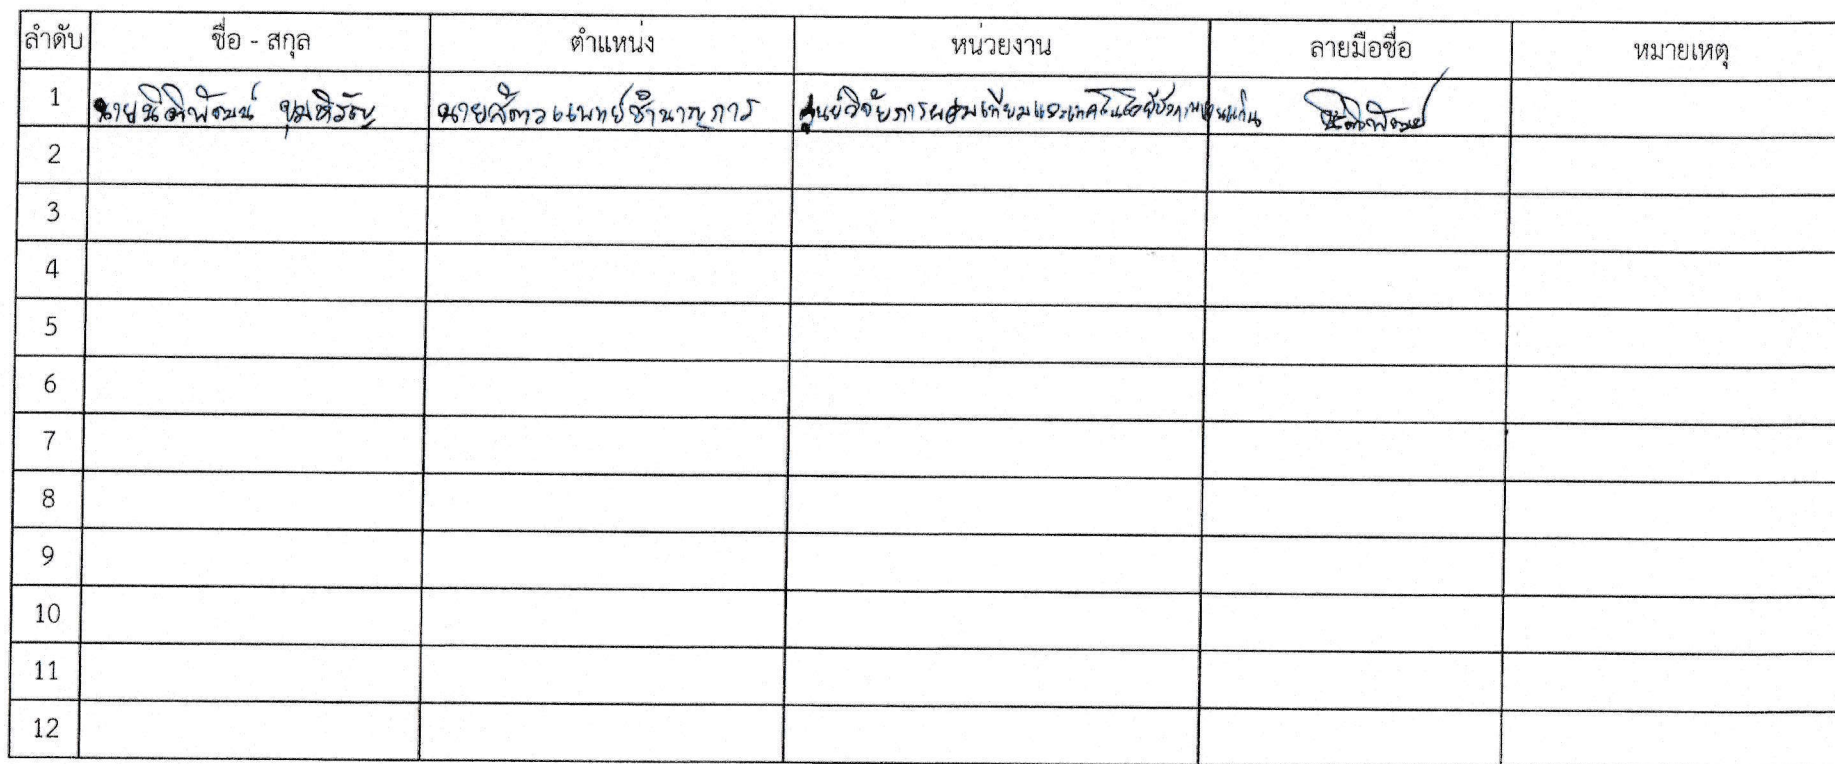 ลำดับ ชื่อ - สกุล ตำแหน่ง หน่วยงาน ลายมือชื่อ หมายเหตุ
1 นายนิติพัฒน์ นายสัตวแพทย์ชำนาญการ ศูนย์วิจัยการผสมเทียมและเทคโนโลยีชีวภาพขอนแก่น นิติพัฒน์
2
3
4
5
6
7
8
9
10
11
12